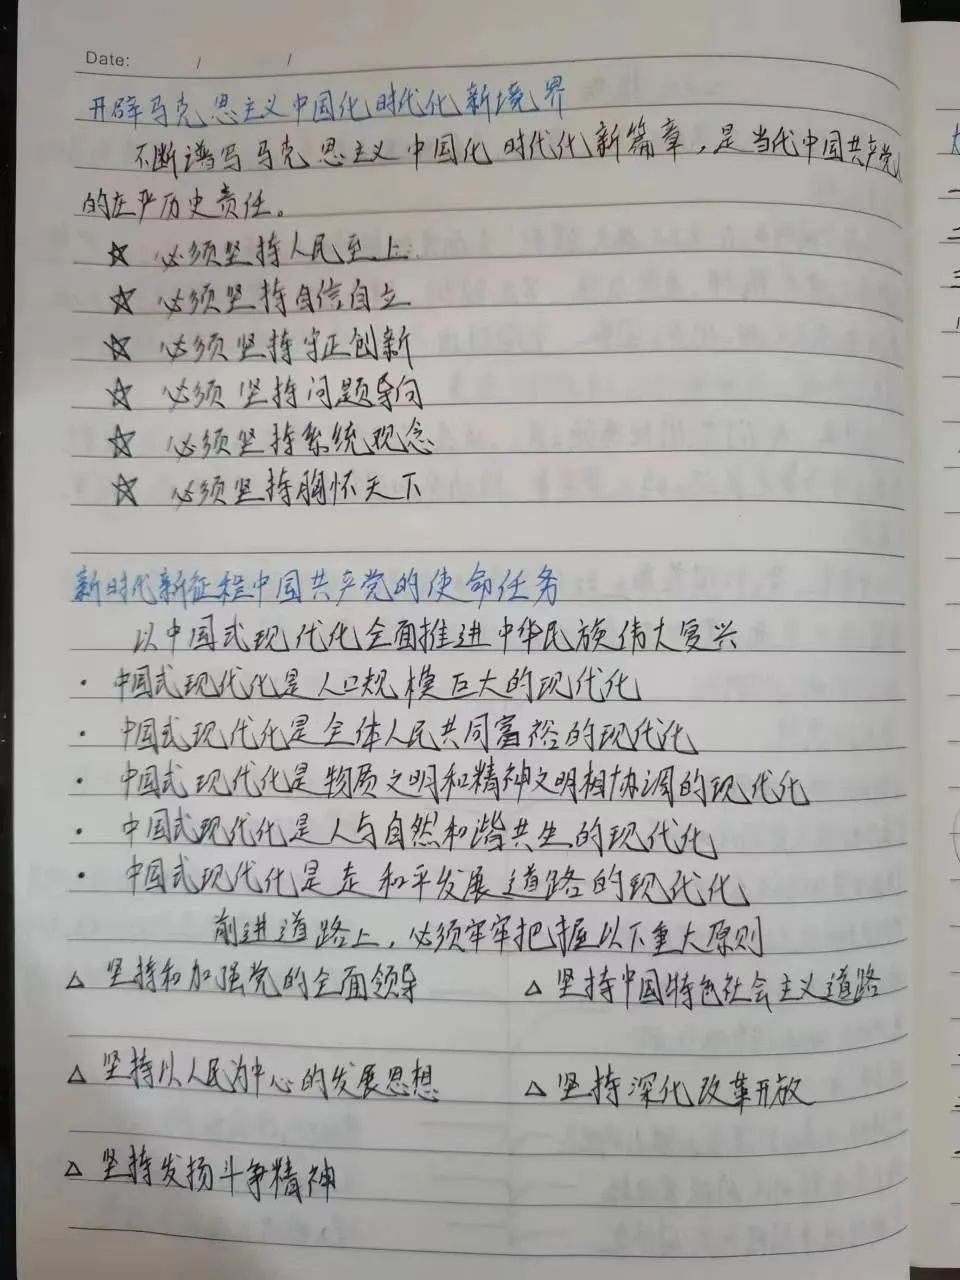 Date: / /
开辟马克思主义中国化时代化新境界
不断谱写马克思主义中国化时代化新篇章，是当代中国共产党人
的庄严历史责任。
☆ 必须坚持人民至上
☆ 必须坚持自信自立
☆ 必须坚持守正创新
☆ 必须坚持问题导向
☆ 必须坚持系统观念
☆ 必须坚持胸怀天下
新时代新征程中国共产党的使命任务
以中国式现代化全面推进中华民族伟大复兴
· 中国式现代化是人口规模巨大的现代化
· 中国式现代化是全体人民共同富裕的现代化
· 中国式现代化是物质文明和精神文明相协调的现代化
· 中国式现代化是人与自然和谐共生的现代化
· 中国式现代化是走和平发展道路的现代化
前进道路上，必须牢牢把握以下重大原则
△ 坚持和加强党的全面领导 △ 坚持中国特色社会主义道路
△ 坚持以人民为中心的发展思想 △ 坚持深化改革开放
△ 坚持发扬斗争精神